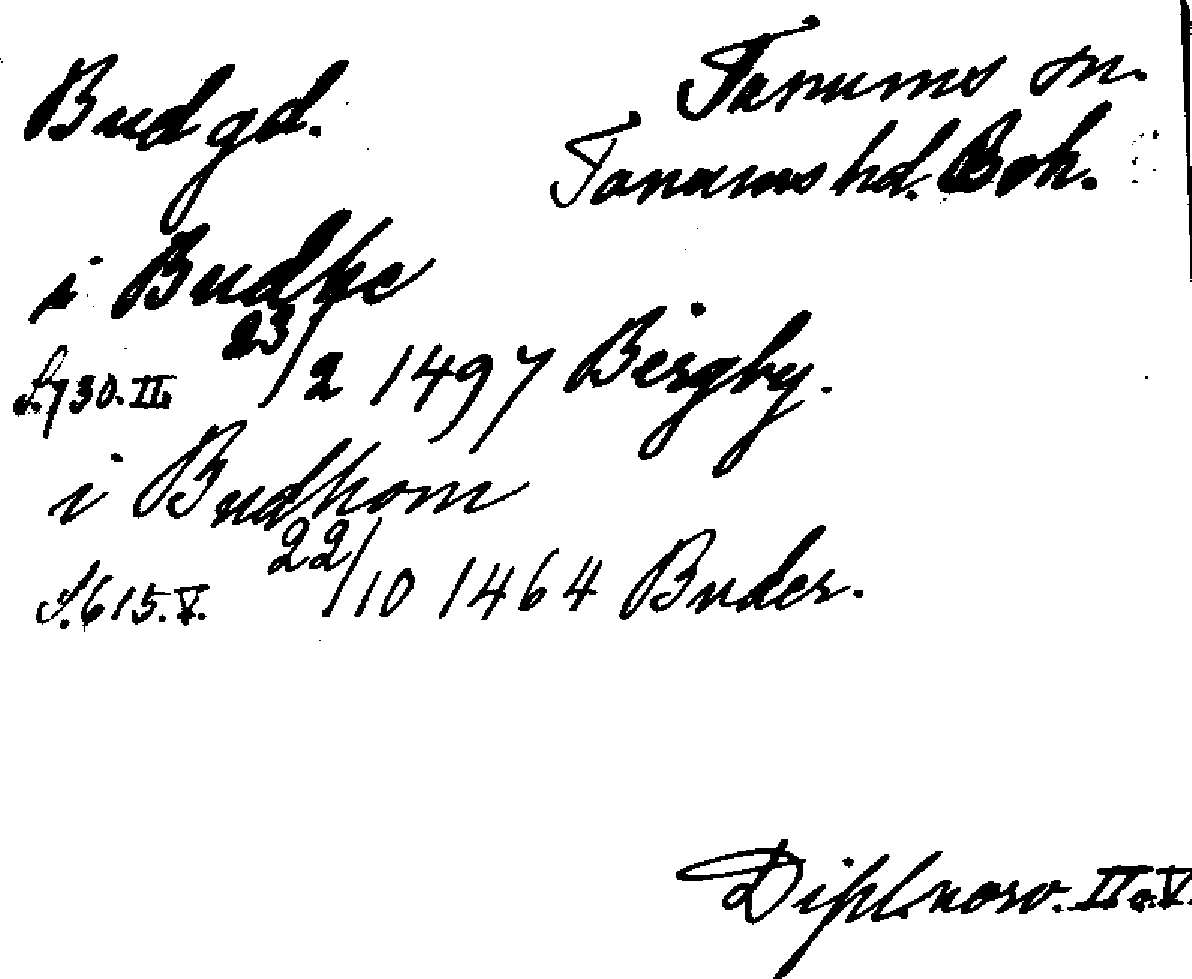 Bud gd.
Tanums sn.
Tanums hd. Boh.
i Budhe
S. 730. II. 23/2 1497 Bergby.
i Budhom
S. 615. V. 22/10 1464 Buder.
Dipl. norv. II o. V.